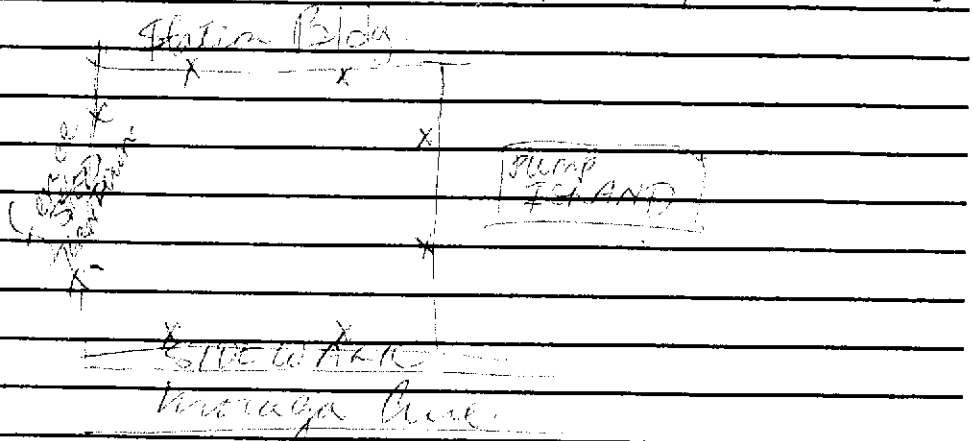 Station Bldg.
X X
X
X
PUMP
ISLAND
X
X
X X
SIDEWALK
Moraga Ave.